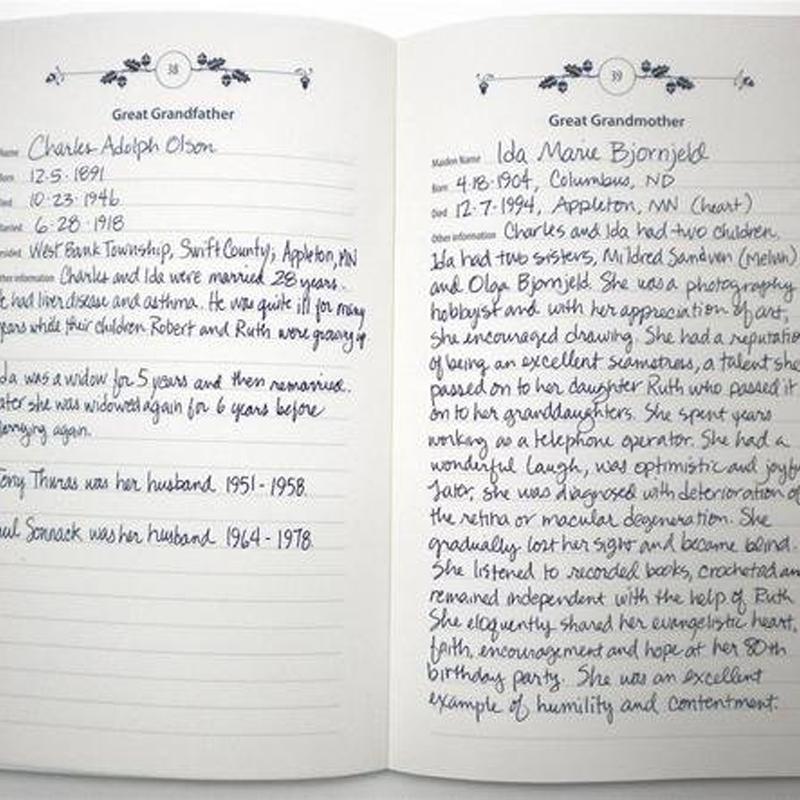 38
Great Grandfather
Name Charles Adolph Olson
Born 12-5-1891
Died 10-23-1946
Married 6-28-1918
West Bank Township, Swift County; Appleton, MN
Other information Charles and Ida were married 28 years.
He had liver disease and asthma. He was quite ill for many
years while their children Robert and Ruth were growing up
Ida was a widow for 5 years and then remarried.
Later she was widowed again for 6 years before
marrying again.
Tony Thuras was her husband 1951-1958.
Paul Sonnack was her husband 1964-1978.
39
Great Grandmother
Maiden Name Ida Marie Bjornjeld
Born 4-18-1904, Columbus, ND
Died 12-7-1994, Appleton, MN (heart)
Other information Charles and Ida had two children.
Ida had two sisters, Mildred Sandven (Melvin)
and Olga Bjornjeld. She was a photography
hobbyist and with her appreciation of art,
she encouraged drawing. She had a reputation
of being an excellent seamstress, a talent she
passed on to her daughter Ruth who passed it
on to her granddaughters. She spent years
working as a telephone operator. She had a
wonderful laugh, was optimistic and joyful
Later, she was diagnosed with deterioration of
the retina or macular degeneration. She
gradually lost her sight and became blind.
She listened to recorded books, crocheted and
remained independent with the help of Ruth
She eloquently shared her evangelistic heart,
faith, encouragement and hope at her 80th
birthday party. She was an excellent
example of humility and contentment.